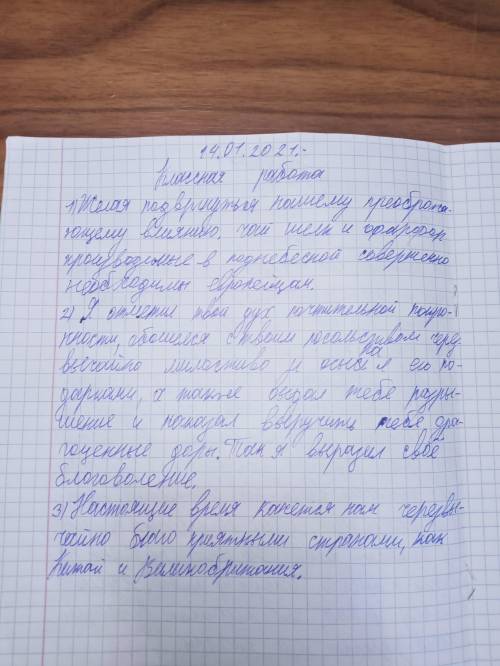 14.01.2021.-
Классная работа
1) Желая подвергнуться нашему преобража-
ющему влиянию. Чай шелк и фарфор
производимые в поднебесной совершенно
необходимы европейцам.
2) Я отметил твой дух почтительной покор-
ности, обошелся с твоим посольством чере
вычайно милостиво и осы на л его по-
дарками, а также выдал тебе разре-
шение и показал выручить тебе дра-
гоценные дары. Так я выразил своё
благоволение.
3) Настоящие время кажется нам черезвы-
чайно благо приятными странами, как
Китай и Великобритания.